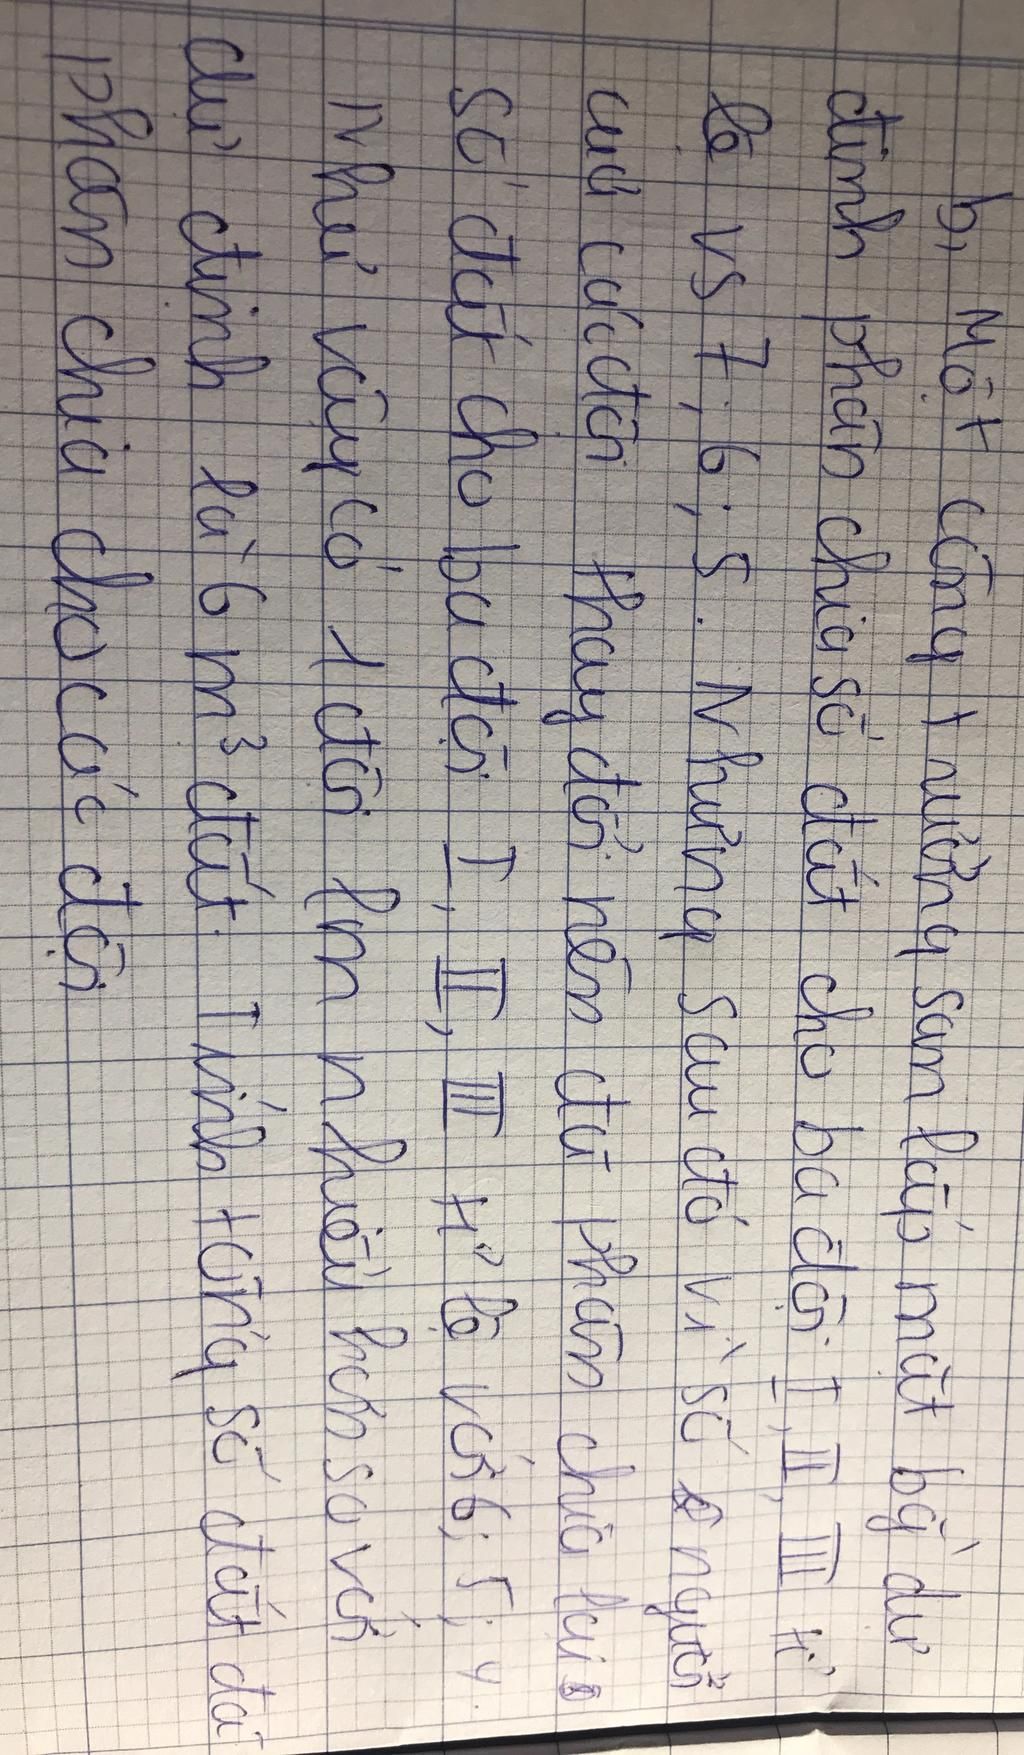 b, Một công trường san lấp mặt bằng dự
định phân chia số đất cho ba đội I, II, III tỉ
lệ vs 7; 6; 5. Nhưng sau đó vì số người
của các đội thay đổi nên đã phân chia lại
số đất cho ba đội I, II, III tỉ lệ với 6; 5; 4.
Như vậy có 1 đội làm nhiều hơn so với
dự định là 6 m³ đất. Tính tổng số đất đã
phân chia cho các đội